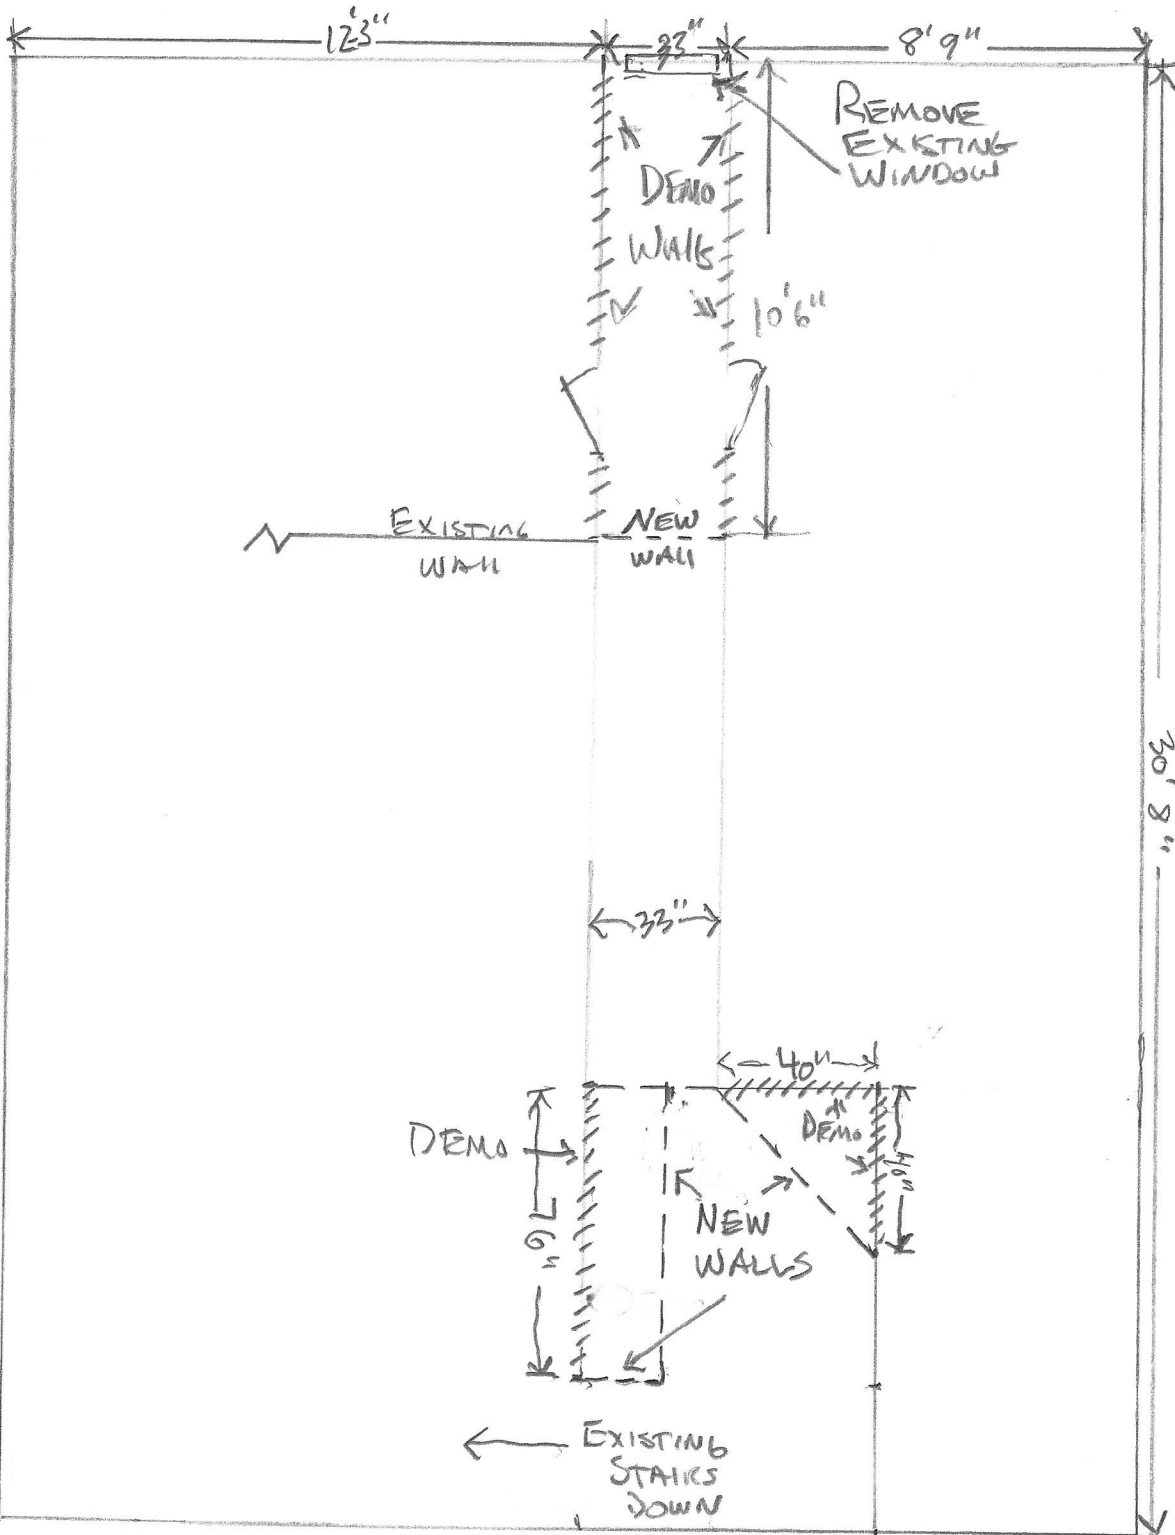 12'3"
33"
8'9"
REMOVE
EXISTING
WINDOW
DEMO
WAllS
10'6"
EXISTING
WAll
NEW
WAll
30' 8"
33"
40"
DEMO
DEMO
76"
NEW
WALLS
EXISTING
STAIRS
DOWN